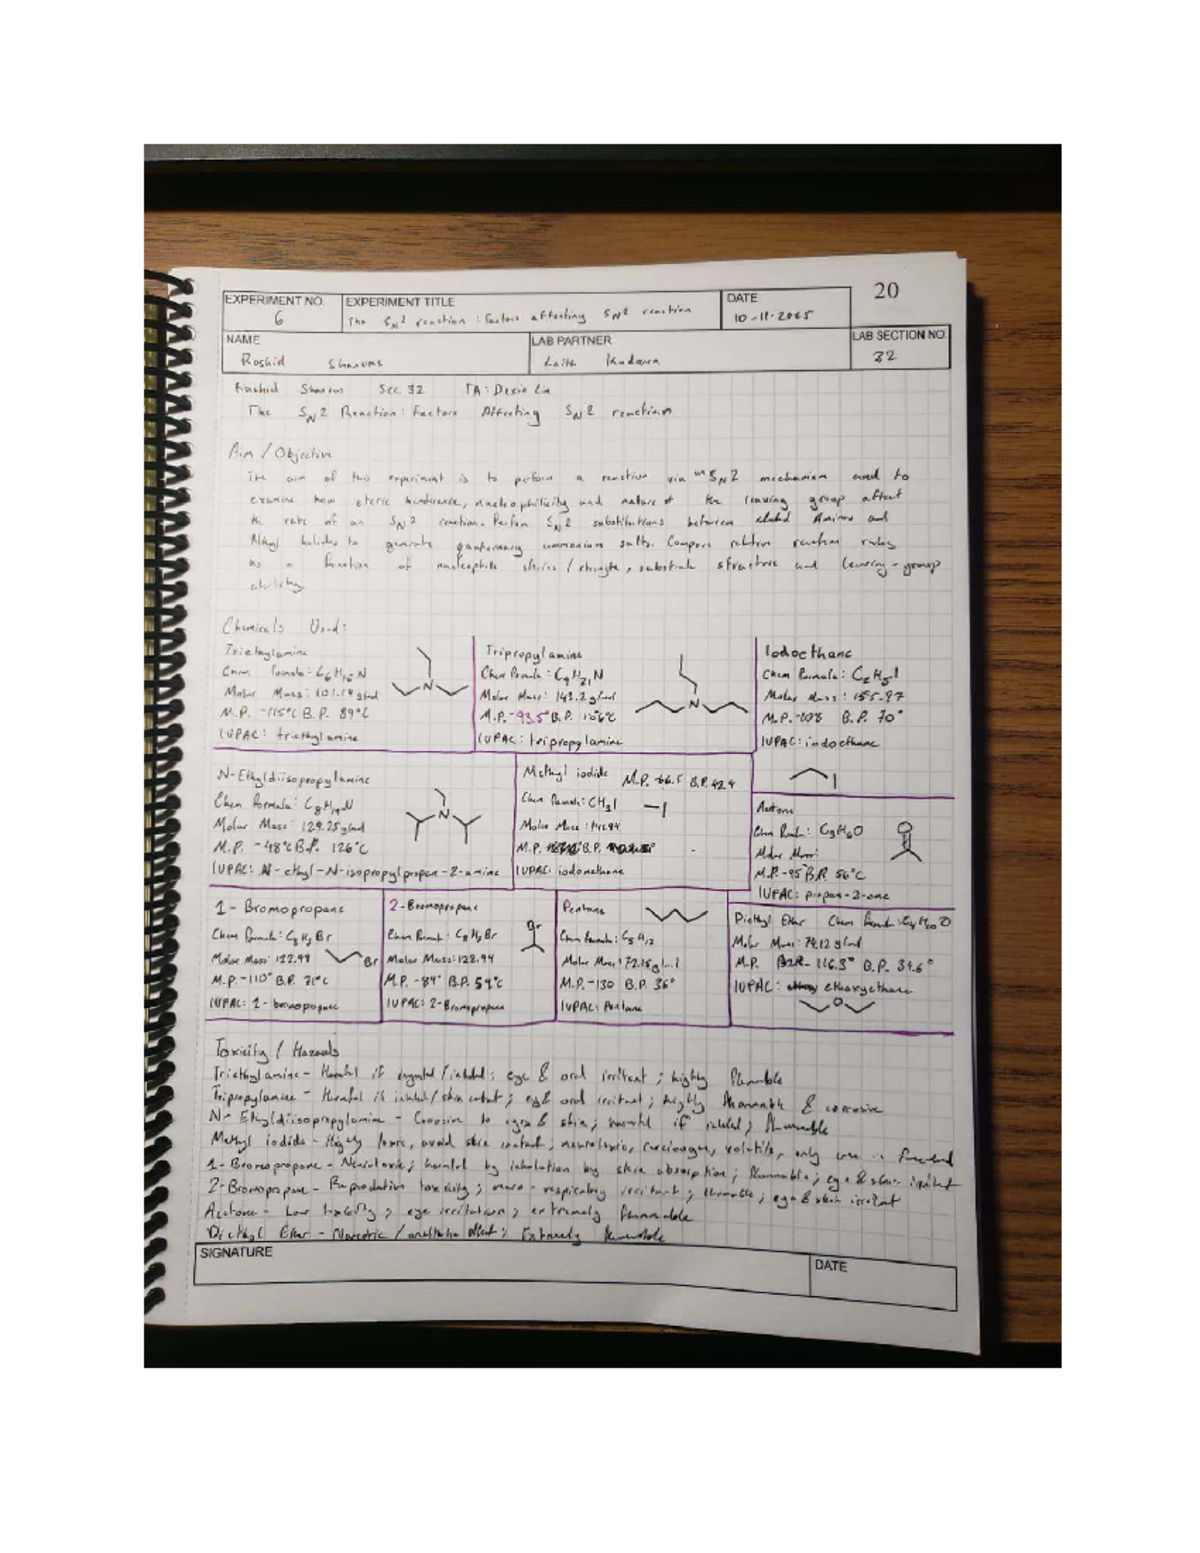 EXPERIMENT NO.
6
EXPERIMENT TITLE
The SN2 reaction: Factors affecting SN2 reaction
DATE
10-11-2025
20
NAME
Rashid Shannus
LAB PARTNER
Laith
LAB SECTION NO.
32
Rashid Sec. 32 TA: Dexin Liu
The SN2 Reaction: Factors Affecting SN2 reaction
Aim / Objective
The aim of this experiment is to perform a reaction via an SN2 mechanism and to
examine how steric hindrance, nucleophilicity and nature of the leaving group affect
the rate of an SN2 reaction. Perform SN2 substitutions between Amines and
Alkyl halides to generate quaternary ammonium salts. Compare relative reaction rates
as a function of nucleophile sterics / strength, substrate structure and leaving-group
ability.
Chemicals Used:
Triethylamine
Chem formula: C6H15N
Molar Mass: 101.19 g/mol
M.P. -115°C B.P. 89°C
IUPAC: triethylamine
N
Tripropylamine
Chem formula: C9H21N
Molar Mass: 143.2 g/mol
M.P. -93.5° B.P. 156°C
IUPAC: tripropylamine
N
Iodoethane
Chem formula: C2H5I
Molar Mass: 155.97
M.P. -108 B.P. 70°
IUPAC: iodoethane
I
N-Ethyldiisopropylamine
Chem formula: C8H19N
Molar Mass: 129.25 g/mol
M.P. -48°C B.P. 126°C
IUPAC: N-ethyl-N-isopropylpropan-2-amine
N
Methyl iodide M.P. -66.5 B.P. 42.4
Chem formula: CH3I
I
Molar Mass: 141.94
M.P. B.P.
IUPAC: iodomethane
Acetone
Chem formula: C3H6O
Molar Mass:
M.P. -95° B.P. 56°C
IUPAC: propan-2-one
O
1-Bromopropane
Chem formula: C3H7Br
Molar Mass: 122.99
Br
M.P. -110° B.P. 71°C
IUPAC: 1-bromopropane
2-Bromopropane
Br
Chem formula: C3H7Br
Molar Mass: 122.94
M.P. -89° B.P. 59°C
IUPAC: 2-Bromopropane
Pentane
Chem formula: C5H12
Molar Mass: 72.15 g/mol
M.P. -130 B.P. 36°
IUPAC: Pentane
Diethyl Ether Chem formula: C4H10O
Molar Mass: 74.12 g/mol
M.P. -116.3° B.P. 34.6°
IUPAC: ethoxyethane
O
Toxicity / Hazards
Triethylamine - Harmful if ingested / inhaled; eye & oral irritant; highly flammable
Tripropylamine - Harmful if inhaled / skin contact; eye & oral irritant; highly flammable & corrosive
N-Ethyldiisopropylamine - Corrosive to eyes & skin; harmful if inhaled; flammable
Methyl iodide - Highly toxic, avoid skin contact; neurotoxic, carcinogen, volatile, only use in fumehood
1-Bromopropane - Neurotoxic; harmful by inhalation by skin absorption; flammable; eye & skin irritant
2-Bromopropane - Reproductive toxicity; respiratory irritant; flammable; eye & skin irritant
Acetone - Low toxicity; eye irritation; extremely flammable
Diethyl Ether - Narcotic / anesthetic effect; Extremely flammable
SIGNATURE
DATE